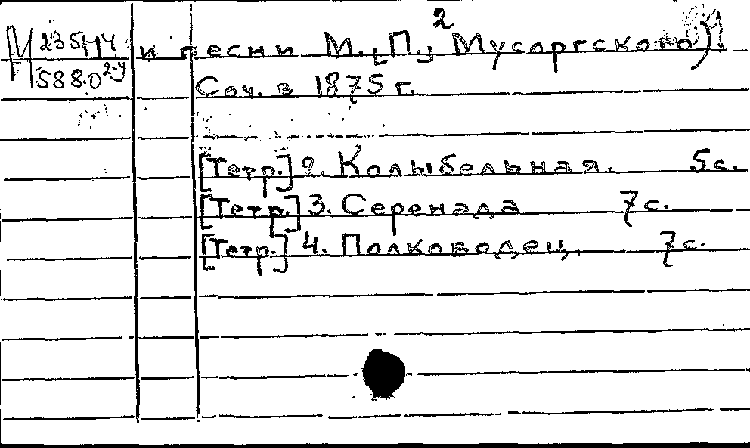 2
М 235/14 и песни М.[П.] Мусоргского).
588.0 2-у
Соч. в 1875 г.
[Тетр.] 2. Колыбельная. 5 с.
[Тетр.] 3. Серенада 7 с.
[Тетр.] 4. Полководец. 7 с.